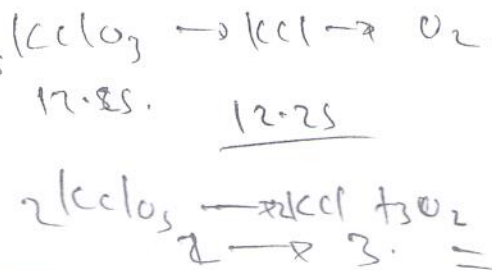 KClO3 → KCl → O2
12.25
2KClO3 → 2KCl + 3O2
2 → 3. =